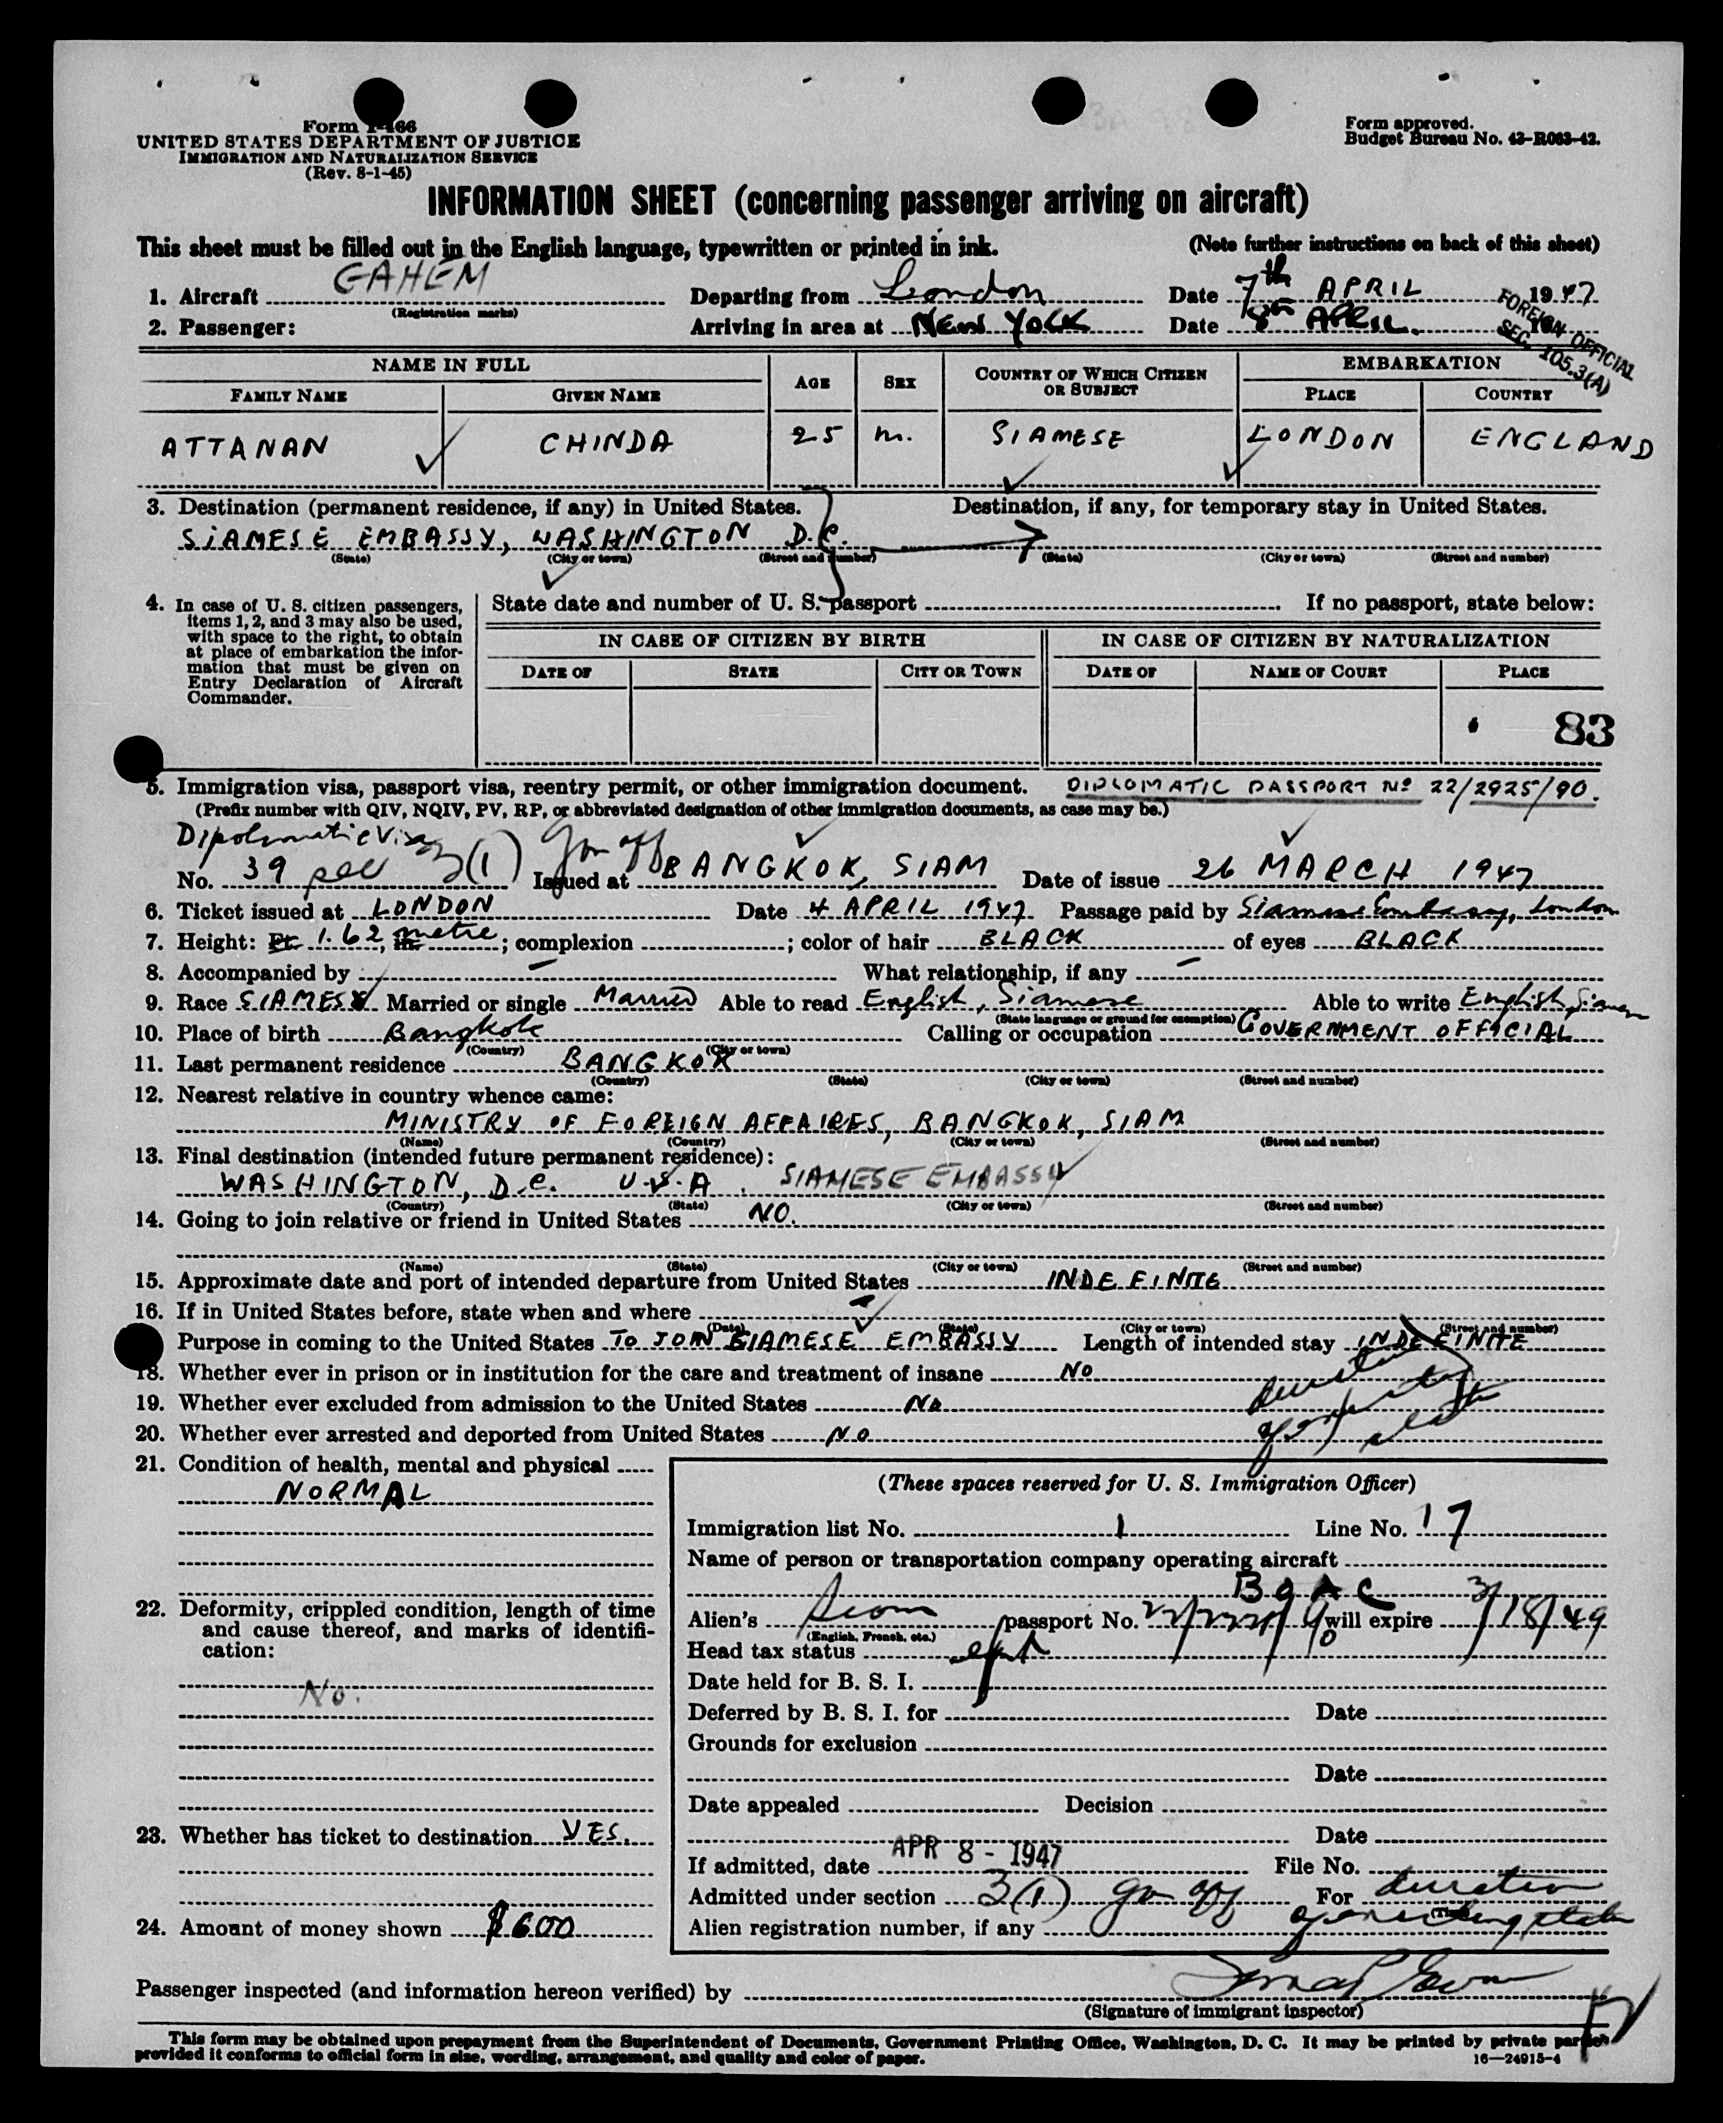 Form I-466
UNITED STATES DEPARTMENT OF JUSTICE
IMMIGRATION AND NATURALIZATION SERVICE
(Rev. 8-1-45)
Form approved.
Budget Bureau No. 43-R083-42.
INFORMATION SHEET (concerning passenger arriving on aircraft)
This sheet must be filled out in the English language, typewritten or printed in ink. (Note further instructions on back of this sheet)
1. Aircraft GAHEM Departing from London Date 7th APRIL 1947
(Registration marks)
2. Passenger: Arriving in area at NEW YORK Date 8th APRIL. 19
FOREIGN OFFICIAL
SEC. 105.3(A)
NAME IN FULL AGE SEX COUNTRY OF WHICH CITIZEN OR SUBJECT EMBARKATION
FAMILY NAME GIVEN NAME PLACE COUNTRY
ATTANAN CHINDA 25 M. SIAMESE LONDON ENGLAND
3. Destination (permanent residence, if any) in United States. Destination, if any, for temporary stay in United States.
SIAMESE EMBASSY, WASHINGTON D.C.
(State) (City or town) (Street and number) (State) (City or town) (Street and number)
4. In case of U. S. citizen passengers, items 1, 2, and 3 may also be used, with space to the right, to obtain at place of embarkation the information that must be given on Entry Declaration of Aircraft Commander.
State date and number of U. S. passport If no passport, state below:
IN CASE OF CITIZEN BY BIRTH IN CASE OF CITIZEN BY NATURALIZATION
DATE OF STATE CITY OR TOWN DATE OF NAME OF COURT PLACE
83
5. Immigration visa, passport visa, reentry permit, or other immigration document. DIPLOMATIC PASSPORT Nº 22/2925/90.
(Prefix number with QIV, NQIV, PV, RP, or abbreviated designation of other immigration documents, as case may be.)
Diplomatic Visa
No. 39 3(1) Gov off Issued at BANGKOK, SIAM Date of issue 26 MARCH 1947
6. Ticket issued at LONDON Date 4 APRIL 1947 Passage paid by Siamese Embassy, London
7. Height: Ft. 1.62, in. metre; complexion ; color of hair BLACK of eyes BLACK
8. Accompanied by - What relationship, if any -
9. Race SIAMESE Married or single Married Able to read English, Siamese Able to write English, Siamese
(State language or ground for exemption)
10. Place of birth Bangkok Calling or occupation GOVERNMENT OFFICIAL
(Country) (City or town)
11. Last permanent residence BANGKOK
(Country) (State) (City or town) (Street and number)
12. Nearest relative in country whence came:
MINISTRY OF FOREIGN AFFAIRES, BANGKOK, SIAM
(Name) (Country) (City or town) (Street and number)
13. Final destination (intended future permanent residence):
WASHINGTON, D.C. U.S.A. SIAMESE EMBASSY
(Country) (State) (City or town) (Street and number)
14. Going to join relative or friend in United States NO.
(Name) (State) (City or town) (Street and number)
15. Approximate date and port of intended departure from United States INDEFINITE
16. If in United States before, state when and where -
(Date) (State) (City or town) (Street and number)
Purpose in coming to the United States TO JOIN SIAMESE EMBASSY Length of intended stay INDEFINITE
18. Whether ever in prison or in institution for the care and treatment of insane NO
19. Whether ever excluded from admission to the United States No
20. Whether ever arrested and deported from United States NO
duration
21. Condition of health, mental and physical
NORMAL
22. Deformity, crippled condition, length of time and cause thereof, and marks of identification:
No.
23. Whether has ticket to destination YES.
24. Amount of money shown $600
(These spaces reserved for U. S. Immigration Officer)
Immigration list No. 1 Line No. 17
Name of person or transportation company operating aircraft
BOAC
Alien's Siam passport No. will expire 3/18/49
(English, French, etc.)
Head tax status
Date held for B. S. I.
Deferred by B. S. I. for Date
Grounds for exclusion
Date
Date appealed Decision
Date
If admitted, date APR 8 - 1947 File No.
Admitted under section 3(1) gov off For duration
(Time)
Alien registration number, if any
Passenger inspected (and information hereon verified) by
(Signature of immigrant inspector)
This form may be obtained upon prepayment from the Superintendent of Documents, Government Printing Office, Washington, D. C. It may be printed by private parties
provided it conforms to official form in size, wording, arrangement, and quality and color of paper. 16—24915-4